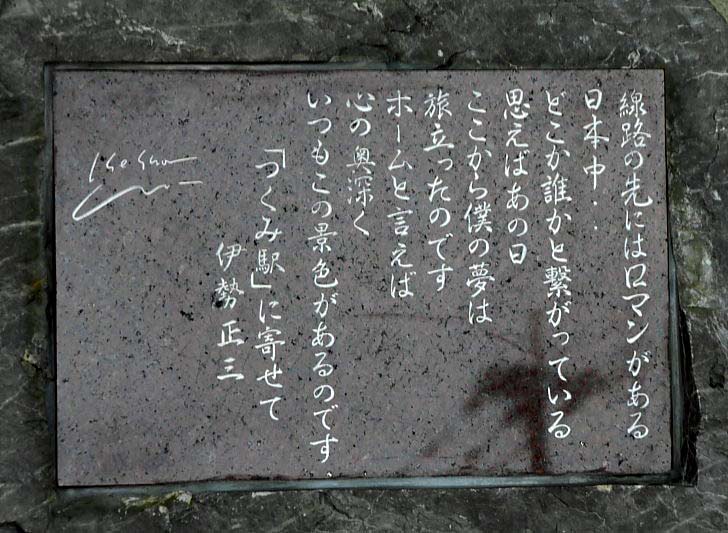 線路の先にはロマンがある
日本中・・
どこか誰かと繋がっている
思えばあの日
ここから僕の夢は
旅立ったのです
ホームと言えば
心の奥深く
いつもこの景色があるのです.
「つくみ駅」に寄せて
伊勢正三